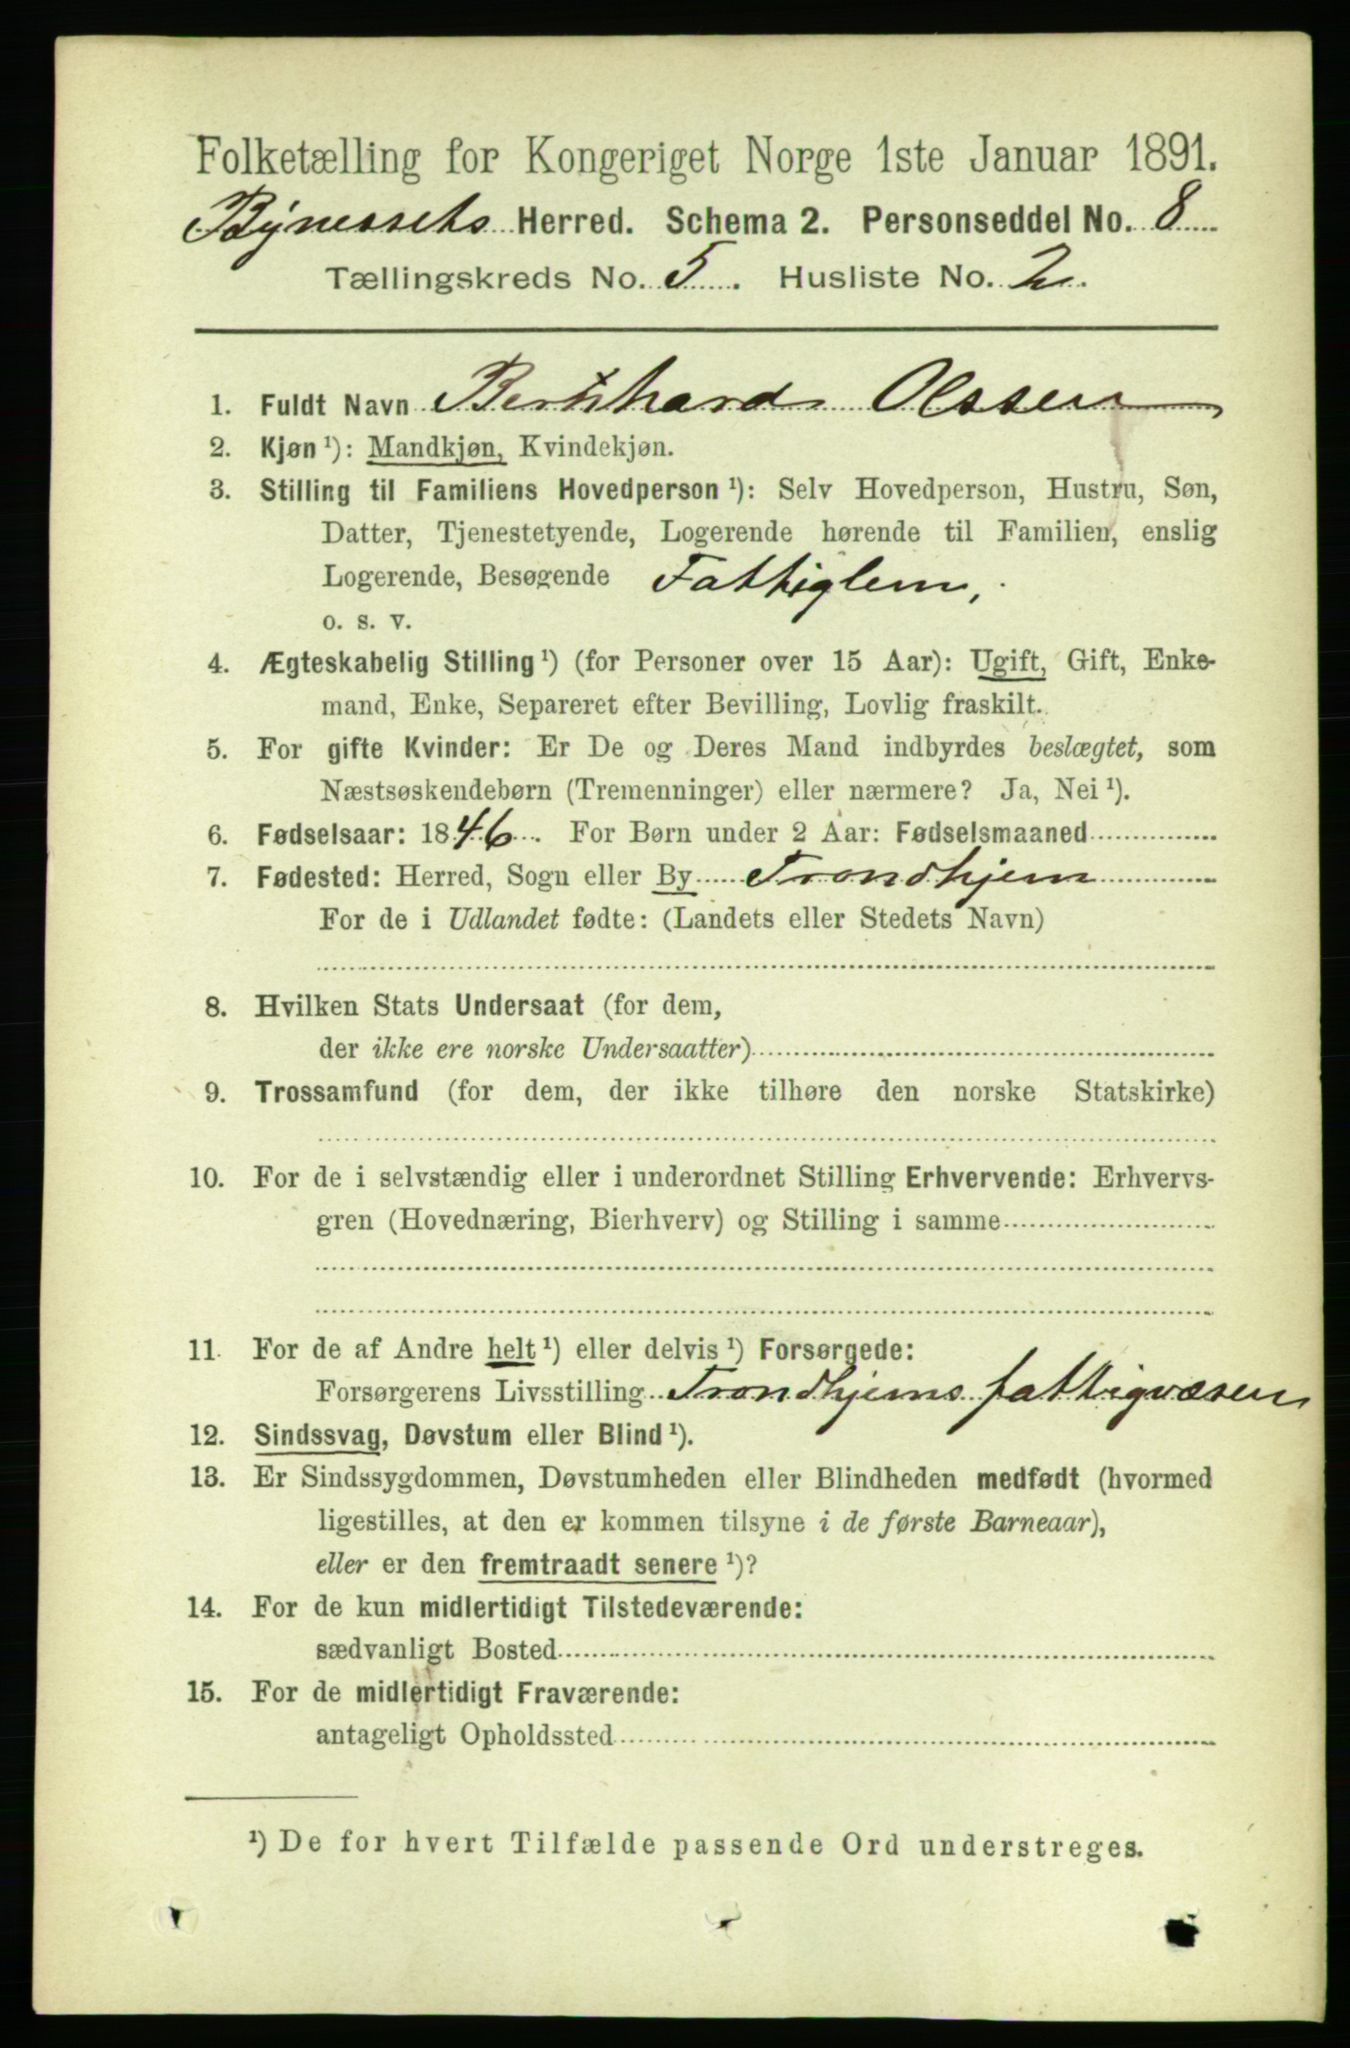 Folketælling for Kongeriget Norge 1ste Januar 1891.
Bynessets Herred. Schema 2. Personseddel No. 8
Tællingskreds No. 5. Husliste No. 2.
1. Fuldt Navn Bernhard Olssen
2. Kjøn ¹): Mandkjøn, Kvindekjøn.
3. Stilling til Familiens Hovedperson ¹): Selv Hovedperson, Hustru, Søn,
Datter, Tjenestetyende, Logerende hørende til Familien, enslig
Logerende, Besøgende Fattiglem,
o. s. v.
4. Ægteskabelig Stilling ¹) (for Personer over 15 Aar): Ugift, Gift, Enke-
mand, Enke, Separeret efter Bevilling, Lovlig fraskilt.
5. For gifte Kvinder: Er De og Deres Mand indbyrdes beslægtet, som
Næstsøskendebørn (Tremenninger) eller nærmere? Ja, Nei ¹).
6. Fødselsaar: 1846. For Børn under 2 Aar: Fødselsmaaned
7. Fødested: Herred, Sogn eller By Trondhjem
For de i Udlandet fødte: (Landets eller Stedets Navn)
8. Hvilken Stats Undersaat (for dem,
der ikke ere norske Undersaatter)
9. Trossamfund (for dem, der ikke tilhøre den norske Statskirke)
10. For de i selvstændig eller i underordnet Stilling Erhvervende: Erhvervs-
gren (Hovednæring, Bierhverv) og Stilling i samme
11. For de af Andre helt ¹) eller delvis ¹) Forsørgede:
Forsørgerens Livsstilling Trondhjems fattigvæsen
12. Sindssvag, Døvstum eller Blind ¹).
13. Er Sindssygdommen, Døvstumheden eller Blindheden medfødt (hvormed
ligestilles, at den er kommen tilsyne i de første Barneaar),
eller er den fremtraadt senere ¹)?
14. For de kun midlertidigt Tilstedeværende:
sædvanligt Bosted
15. For de midlertidigt Fraværende:
antageligt Opholdssted
¹) De for hvert Tilfælde passende Ord understreges.